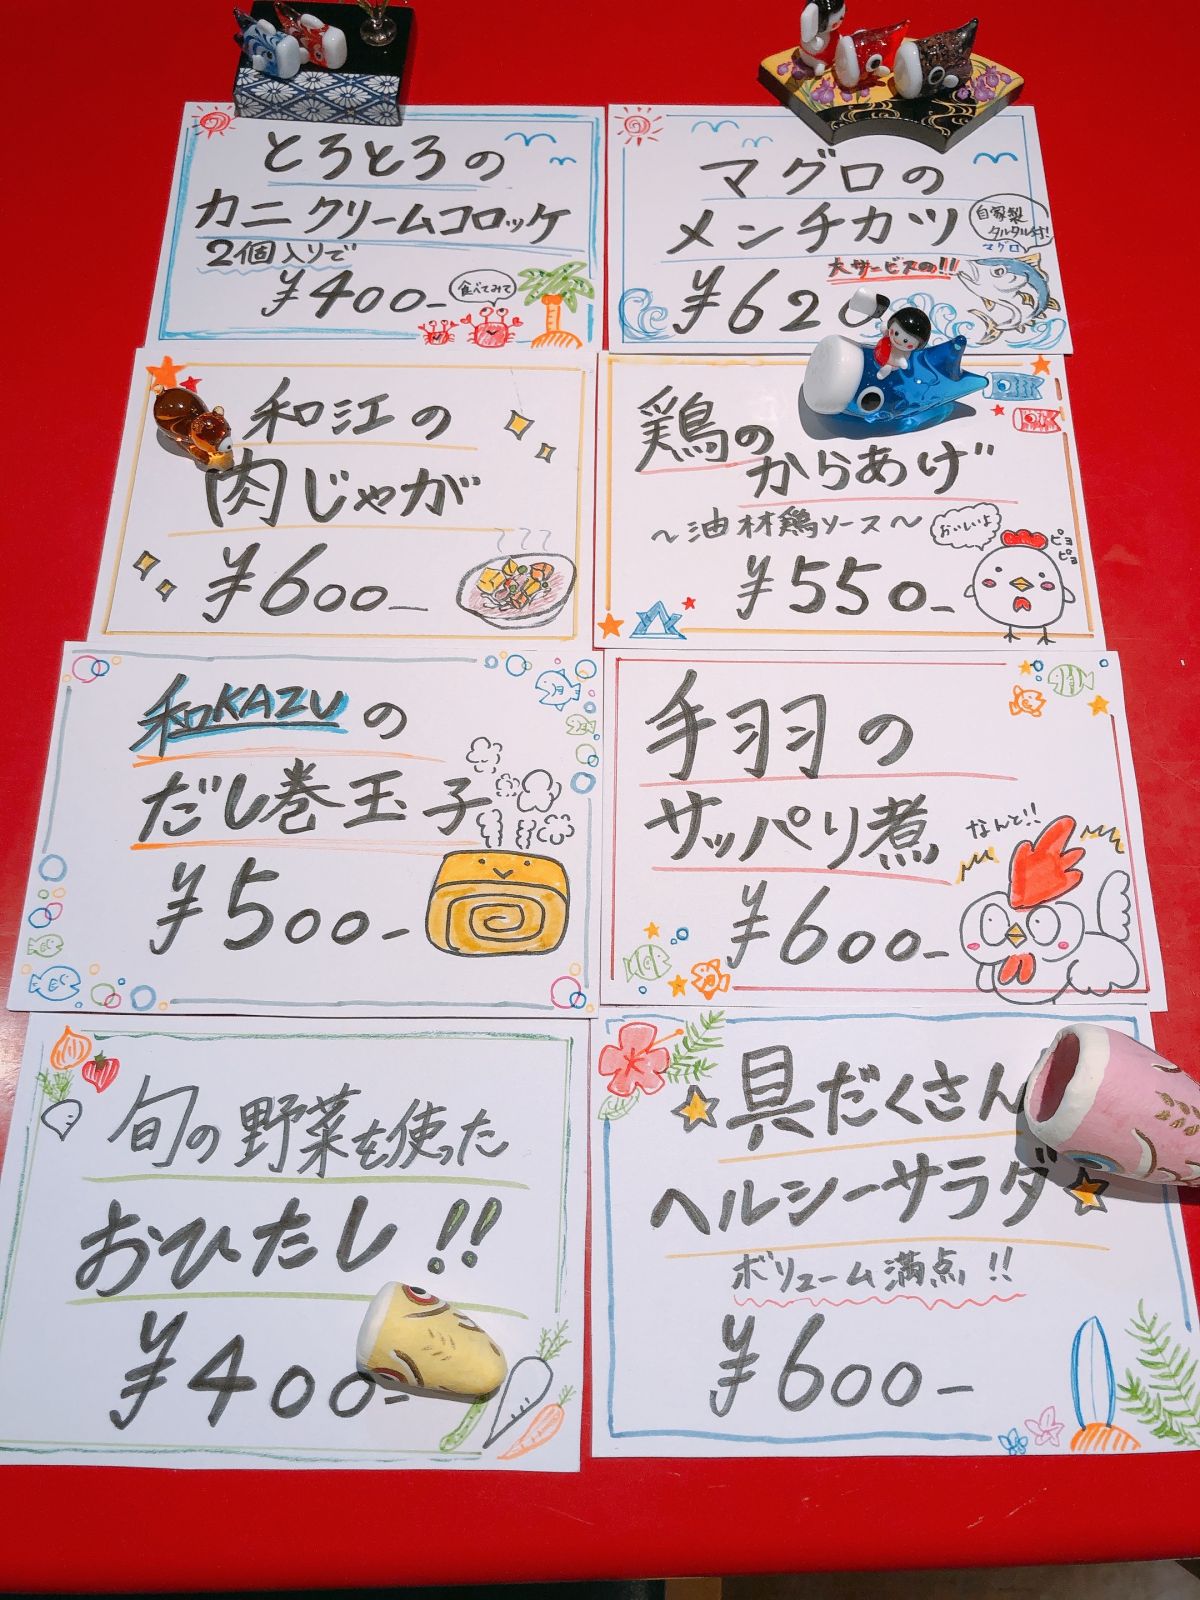 とろとろの
カニクリームコロッケ
2個入りで
¥400-
食べてみて
マグロの
メンチカツ
自家製
タルタル付!
マグロ
大サービスの!!
¥620
和江の
肉じゃが
¥600-
鶏の
からあげ
〜油材鶏ソース〜
おいしいよ
ピヨ
ピヨ
¥550-
和KAZUの
だし巻玉子
¥500-
手羽の
サッパリ煮
なんと!!
¥600-
旬の野菜を使った
おひたし!!
¥400-
具だくさん
ヘルシーサラダ
ボリューム満点!!
¥600-